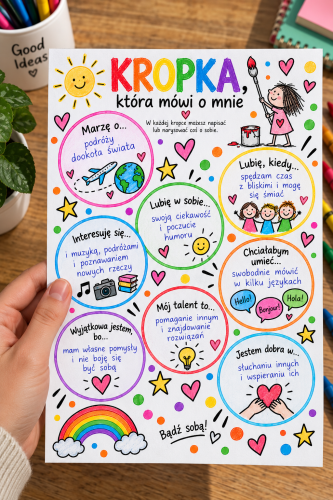 Good
Ideas
KROPKA,
która mówi o mnie
W każdej kropce możesz napisać
lub narysować coś o sobie.
Marzę o...
podróży
dookoła świata
Lubię, kiedy...
spędzam czas
z bliskimi i mogę
się śmiać
Lubię w sobie...
swoją ciekawość
i poczucie
humoru
Interesuję się...
i muzyką, podróżami
i poznawaniem
nowych rzeczy
Chciałabym
umieć...
swobodnie mówić
w kilku językach
Hello!
Bonjour!
Hola!
Mój talent to...
pomaganie innym
i znajdowanie
rozwiązań
Wyjątkowa jestem,
bo...
mam własne pomysły
i nie boję się
być sobą
Jestem dobra w...
słuchaniu innych
i wspieraniu ich
Bądź sobą!